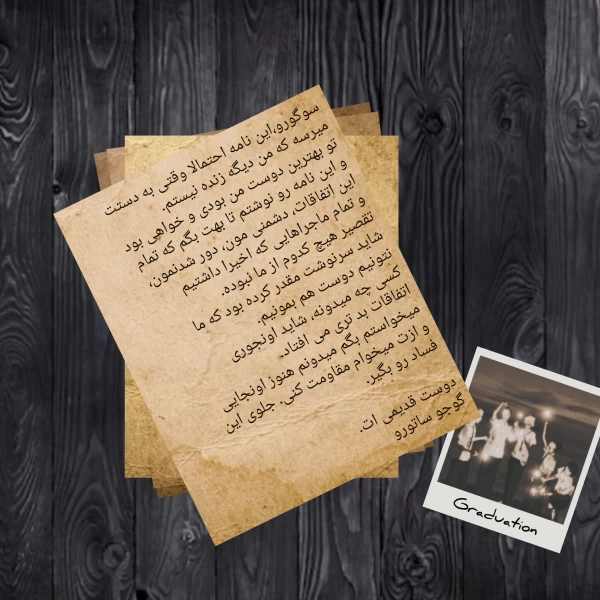 سوگورو،این نامه احتمالا وقتی به دستت
میرسه که من دیگه زنده نیستم.
تو بهترین دوست من بودی و خواهی بود
و این نامه رو نوشتم تا بهت بگم که تمام
این اتفاقات، دشمنی مون، دور شدنمون،
و تمام ماجراهایی که اخیرا داشتیم
تقصیر هیچ کدوم از ما نبوده.
شاید سرنوشت مقدر کرده بود که ما
نتونیم دوست هم بمونیم.
کسی چه میدونه، شاید اونجوری
اتفاقات بد تری می افتاد.
میخواستم بگم میدونم هنوز اونجایی
و ازت میخوام مقاومت کنی. جلوی این
فساد رو بگیر.
دوست قدیمی ات.
گوجو ساتورو
Graduation